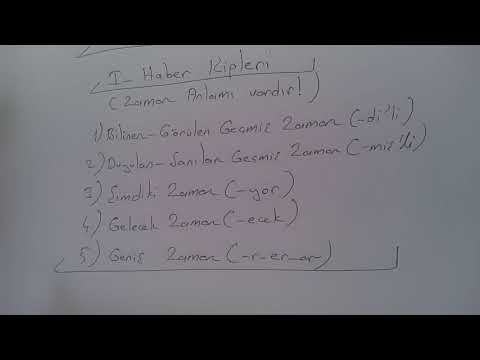 I- Haber Kipleri
(Zaman Anlamı vardır!)
1) Bilinen-Görülen Geçmiş Zaman (-di'li)
2) Duyulan-Sanılan Geçmiş Zaman (-miş'li)
3) Şimdiki Zaman (-yor)
4) Gelecek Zaman (-ecek)
5) Geniş Zaman (-r-er-ar)